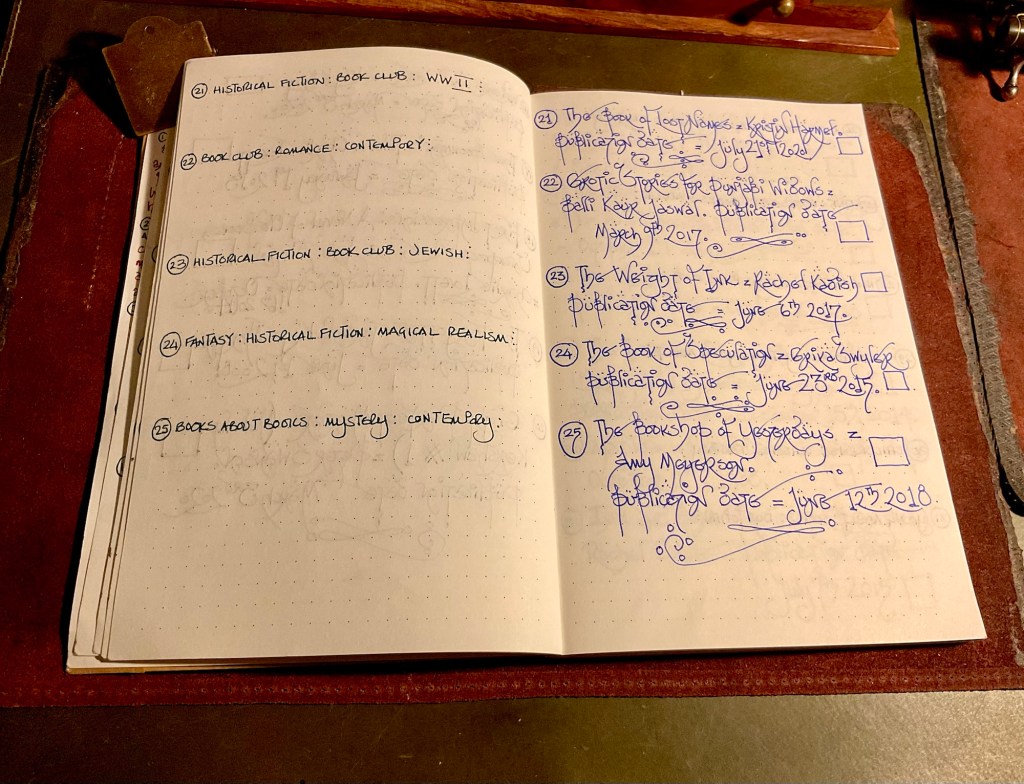 21 HISTORICAL FICTION : BOOK CLUB : WWII :
22 BOOK CLUB : ROMANCE : CONTEMPORY :
23 HISTORICAL FICTION : BOOK CLUB : JEWISH :
24 FANTASY : HISTORICAL FICTION : MAGICAL REALISM :
25 BOOKS ABOUT BOOKS : MYSTERY : CONTEMPORY :
21 The Book of Lost Names = Kristin Harmel.
Publication Date = July 21st 2020
22 Erotic Stories for Punjabi Widows =
Balli Kaur Jaswal. Publication Date
March 9th 2017.
23 The Weight of Ink = Rachel Kadish
Publication Date = June 6th 2017.
24 The Book of Speculation = Erika Swyler
Publication Date = June 23rd 2015.
25 The Bookshop of Yesterdays =
Amy Meyerson.
Publication Date = June 12th 2018.